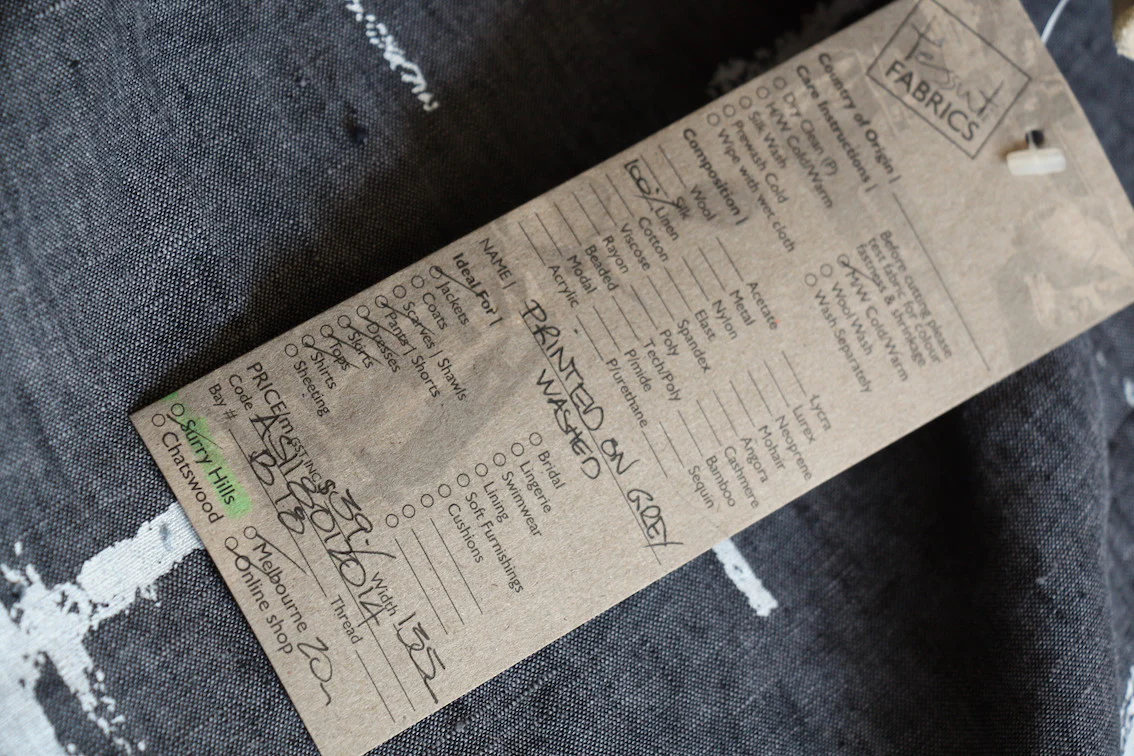 Tessuti
FABRICS
Country of Origin |
Care Instructions |
Dry Clean (P)
H/W Cold/Warm
Silk Wash
Prewash Cold
Wipe with wet cloth
Before cutting please
test fabric for colour
fastness & shrinkage
H/W Cold/Warm
Wool Wash
Wash Separately
Composition |
Silk
Wool
100% Linen
Cotton
Viscose
Rayon
Beaded
Modal
Acrylic
Acetate
Metal
Nylon
Elast
Spandex
Poly
Tech/Poly
P/mide
P/urethane
Lycra
Lurex
Neoprene
Mohair
Angora
Cashmere
Bamboo
Sequin
NAME | PRINTED ON GREY
WASHED
Ideal For |
Jackets
Coats
Scarves | Shawls
Pants | Shorts
Dresses
Skirts
Tops
Shirts
Sheeting
Bridal
Lingerie
Swimwear
Lining
Soft Furnishings
Cushions
PRICE/m GST.INC $ 39.- Width 135
Code
Bay # Thread
Surry Hills
Chatswood
Melbourne 20m
Online shop